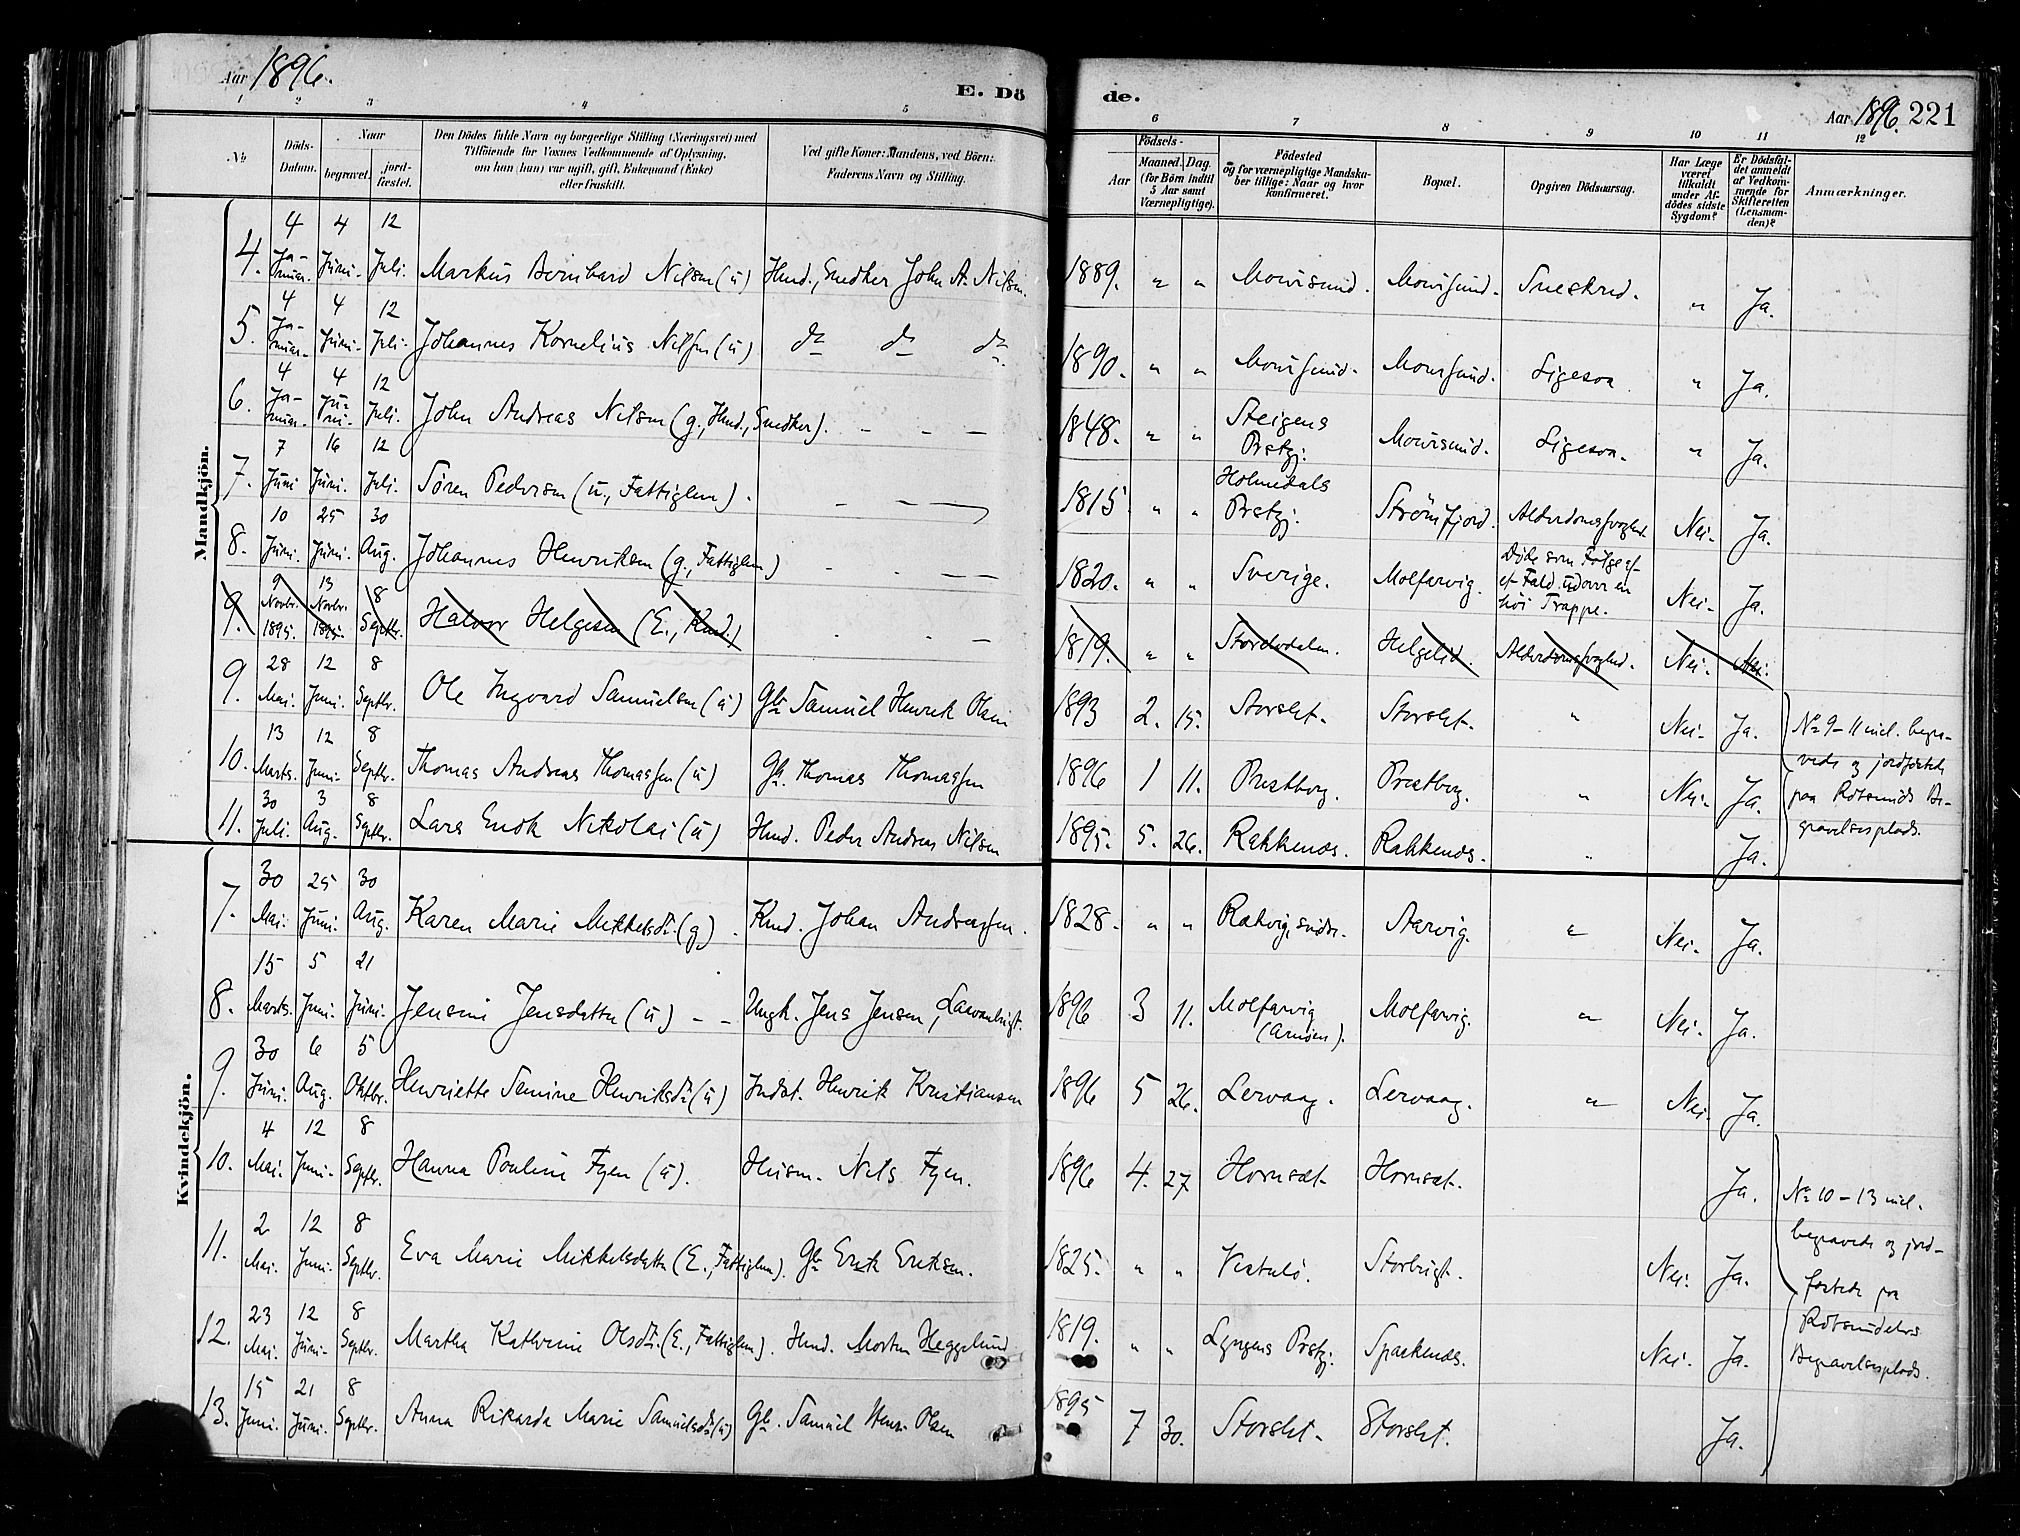 Aar 1896.
E. Dö
de.
Aar 1896. 221
1 2 3 4 5 6 7 8 9 10 11 12
№
Döds-
Datum.
Naar
begravet.
jord-
fæstet.
Den Dödes fulde Navn og borgerlige Stilling (Næringsvei) med
Tilföiende for Voxnes Vedkommende af Oplysning,
om han (hun) var ugift, gift, Enkemand (Enke)
eller fraskilt.
Ved gifte Koner: Mandens, ved Börn:
Faderens Navn og Stilling.
Födsels-
Aar
Maaned. Dag.
(for Börn indtil
5 Aar samt
Værnepligtige).
Födested
og for værnepligtige Mandska-
ber tillige: Naar og hvor
konfirmeret.
Bopæl.
Opgiven Dödsaarsag.
Har Læge
været
tilkaldt
under Af-
dödes sidste
Sygdom?
Er Dödsfal-
det anmeldt
af Vedkom-
mende for
Skifteretten
(Lensman-
den)?
Anmærkninger.
Mandkjön.
4. 4 Januar. 4 Juni. 12 Juli. Markus Bernhard Nilsen (u) Hmd., Snedker John A. Nilsen. 1889. " " Mourisund. Mourisund. Sneskred. " Ja.
5. 4 Januar. 4 Juni. 12 Juli. Johannes Kornelius Nilsen (u) do do do 1890. " " Mourisund. Mourisund. Ligesoa. " Ja.
6. 4 Januar. 4 Juni. 12 Juli. John Andreas Nilsen (g., Hmd., Snedker). — — — 1848. " " Steigens Prstgj. Mourisund. Ligesoa. " Ja.
7. 7 Juni 16 Juni. 12 Juli. Sören Pedersen (u., Fattiglem). — — — 1815. " " Holmedals Prstgj. Strömfjord. Alderdomssvaghed. Nei. Ja.
8. 10 Juni. 25 Juni. 30 Aug. Johannes Henriksen (g., Fattiglem) — — — 1820. " " Sverige. Molfarvig. Døde som Følge af et Fald udover en höi Trappe. Nei. Ja.
9. 9 Novbr. 1895. 13 Novbr. 1895. 8 Septbr. Halvor Helgesen (E., Kmd.) — — — 1819. " " Helgelid. Alderdomssvaghed. Nei. Nei.
9. 28 Mai. 12 Juni. 8 Septbr. Ole Ingvard Samuelsen (u) Gbr. Samuel Henrik Olsen 1893 2. 15. Storslet. Storslet. " Nei. Ja. No 9–11 incl. begra-
10. 13 Marts. 12 Juni. 8 Septbr. Thomas Andreas Thomassen (u) Gb. Thomas Thomassen 1896 1 11. Prestborg. Prestborg. " Nei. Ja. vede og jordfæstede
paa Rotsunds Be-
11. 30 Juli. 3 Aug. 8 Septbr. Lars Enok Nikolai (u) Hmd. Peder Andreas Nilsen 1895. 5. 26. Rakkenæs. Rakkenæs. " Ja. gravelsesplads.
Kvindekjön.
7. 30 Mai. 25 Juni. 30 Aug. Karen Marie Mikkelsdtr. (g) Kmd. Johan Andreassen. 1828. " " Aarvig. " Nei. Ja.
8. 15 Marts. 5 Juni. 21 Juni. Jensine Jensdatter (u) – – Ungk. Jens Jensen, 1896 3 11. Molfarvig (Arnøen). Molfarvig. " Nei. Ja.
9. 30 Juni. 6 Aug. 5 Oktbr. Henriette Semine Henriksdtr. (u) Indst. Henrik Kristiansen 1896 5 26. Lervaag. Lervaag. " Nei. Ja.
10. 4 Mai. 12 Juni. 8 Septbr. Hanna Pouline Fyen (u). Husm. Nils Fyen. 1896 4. 27 Hornsæt. Hornsæt. Ja. No 10–13 incl.
11. 2 Mai. 12 Juni. 8 Septbr. Eva Marie Mikkelsdatter (E., Fattiglem). Gbr. Erik Eriksen. 1825. " " Storbugt. Nei. Ja. begravede og jord-
fæstede paa
12. 23 Mai. 12 Juni. 8 Septbr. Martha Kathrine Olsdtr. (E., Fattiglem). Hmd. Morten Heggelund 1819. " " Lyngens Prstgj. Spaakenæs. Nei. Ja. Rotsundelvs
Begravelsesplads.
13. 15 Juni. 21 Juni. 8 Septbr. Anna Rikarda Marie Samuelsdtr (u) Gb. Samuel Henr. Olsen 1895 7 30. Storslet. Storslet. Ja.